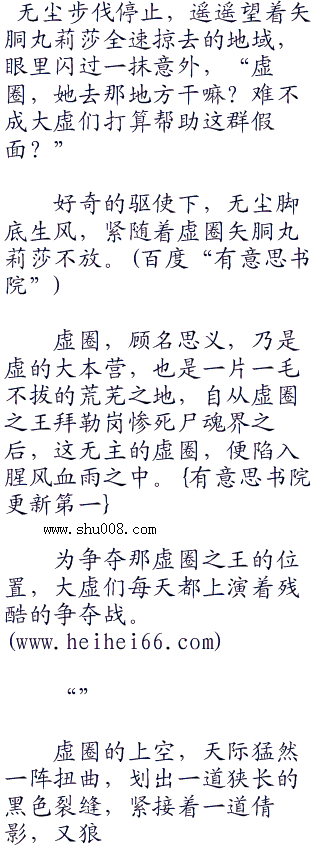 无尘步伐停止，遥遥望着矢
胴丸莉莎全速掠去的地域，
眼里闪过一抹意外，“虚
圈，她去那地方干嘛？难不
成大虚们打算帮助这群假
面？”
好奇的驱使下，无尘脚
底生风，紧随着虚圈矢胴丸
莉莎不放。(百度“有意思书
院”)
虚圈，顾名思义，乃是
虚的大本营，也是一片一毛
不拔的荒芜之地，自从虚圈
之王拜勒岗惨死尸魂界之
后，这无主的虚圈，便陷入
腥风血雨之中。{有意思书院
更新第一}
www.shu008.com
为争夺那虚圈之王的位
置，大虚们每天都上演着残
酷的争夺战。
(www.heihei66.com)
“”
虚圈的上空，天际猛然
一阵扭曲，划出一道狭长的
黑色裂缝，紧接着一道倩
影，又狼